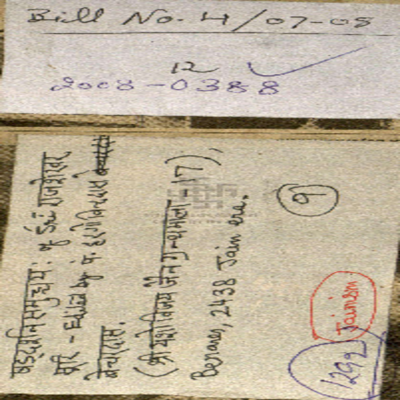 Bill No. 4/07-08
12
2008-0388
षड्दर्शनसमुच्चय: of Sri राजशेखर
सूरि - Edited by पं. हरगोविन्ददास
बेचरदास.
(श्री यशोविजय जैन ग्रन्थमाला - 17),
Benares, 2438 Jain era.
9
Jainism
1292